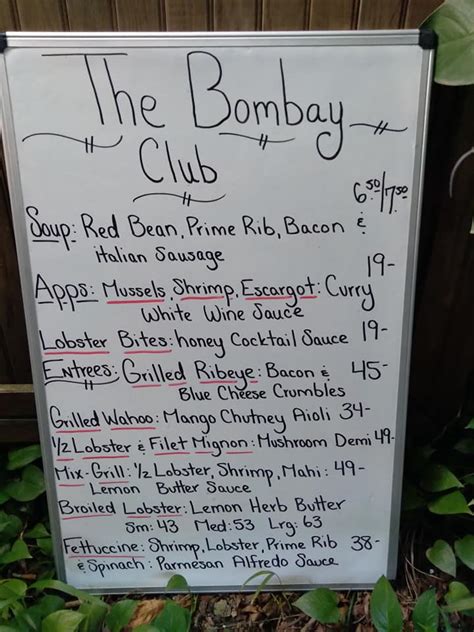 The Bombay
Club
6.50/7.50
Soup: Red Bean, Prime Rib, Bacon &
italian Sausage
19-
Apps: Mussels, Shrimp, Escargot: Curry
White Wine Sauce
Lobster Bites: honey Cocktail Sauce 19-
Entrees: Grilled Ribeye: Bacon & 45-
Blue Cheese Crumbles
Grilled Wahoo: Mango Chutney Aioli 34-
1/2 Lobster & Filet Mignon: Mushroom Demi 49-
Mix-Grill: 1/2 Lobster, Shrimp, Mahi: 49-
Lemon Butter Sauce
Broiled Lobster: Lemon Herb Butter
Sm: 43 Med: 53 Lrg: 63
Fettuccine: Shrimp, Lobster, Prime Rib 38-
& Spinach: Parmesan Alfredo Sauce